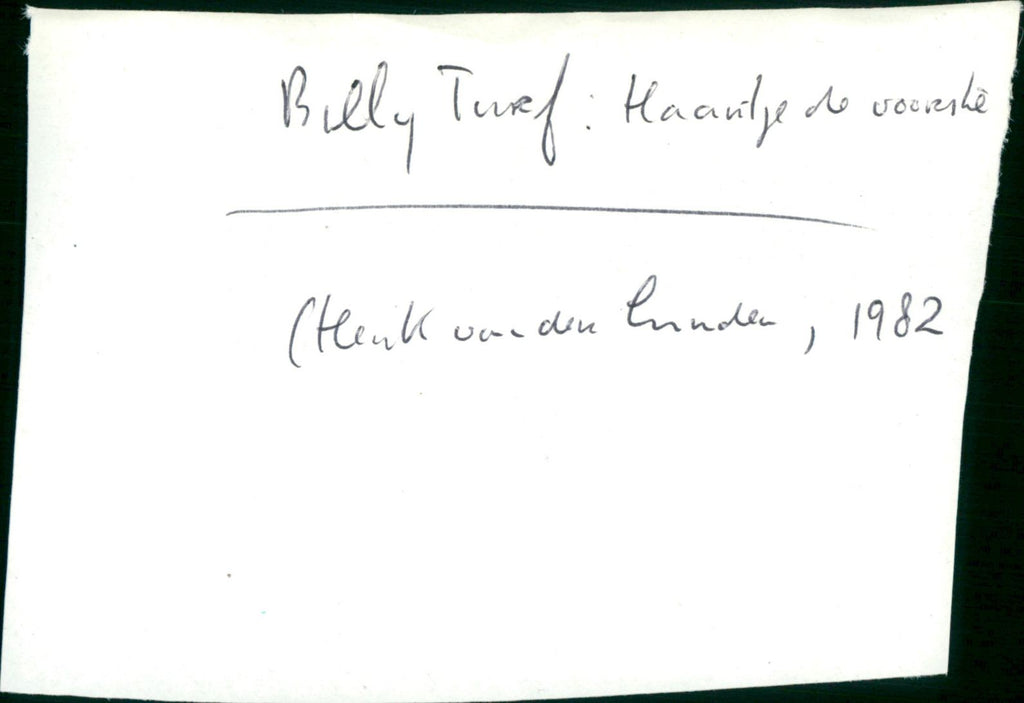 Billy Turf : Haantje de voorste
(Henk van der Linden, 1982